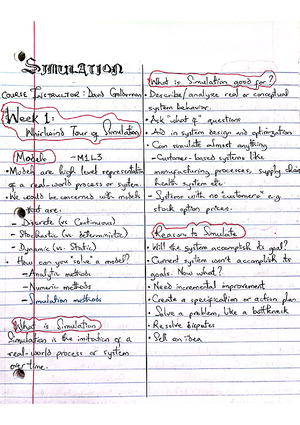 SIMULATION
COURSE INSTRUCTOR: David Goldsman
Week 1:
Whirlwind Tour of Simulation
Models - M1L3
• Models are high level representation
of a real-world process or system.
• We would be concerned with models
that are:
- Discrete (vs Continuous)
- Stochastic (vs deterministic)
- Dynamic (vs. Static)
• How can you "solve" a model?
- Analytic methods
- Numeric methods
- Simulation methods
What is Simulation
Simulation is the imitation of a
real-world process or system
over time.
What is Simulation good for?
• Describe/analyze real or conceptual
system behavior.
• Ask "what if" questions
• Aid in system design and optimization
• Can simulate almost anything
- Customer-based systems like
manufacturing processes, supply chain
health system etc
- Systems with no customers e.g
stock option prices.
Reasons to Simulate
• Will the system accomplish its goal?
• Current system won't accomplish its
goals. Now what?
• Need incremental improvement
• Create a specification or action plan.
• Solve a problem, like a bottleneck
• Resolve disputes
• Sell an idea